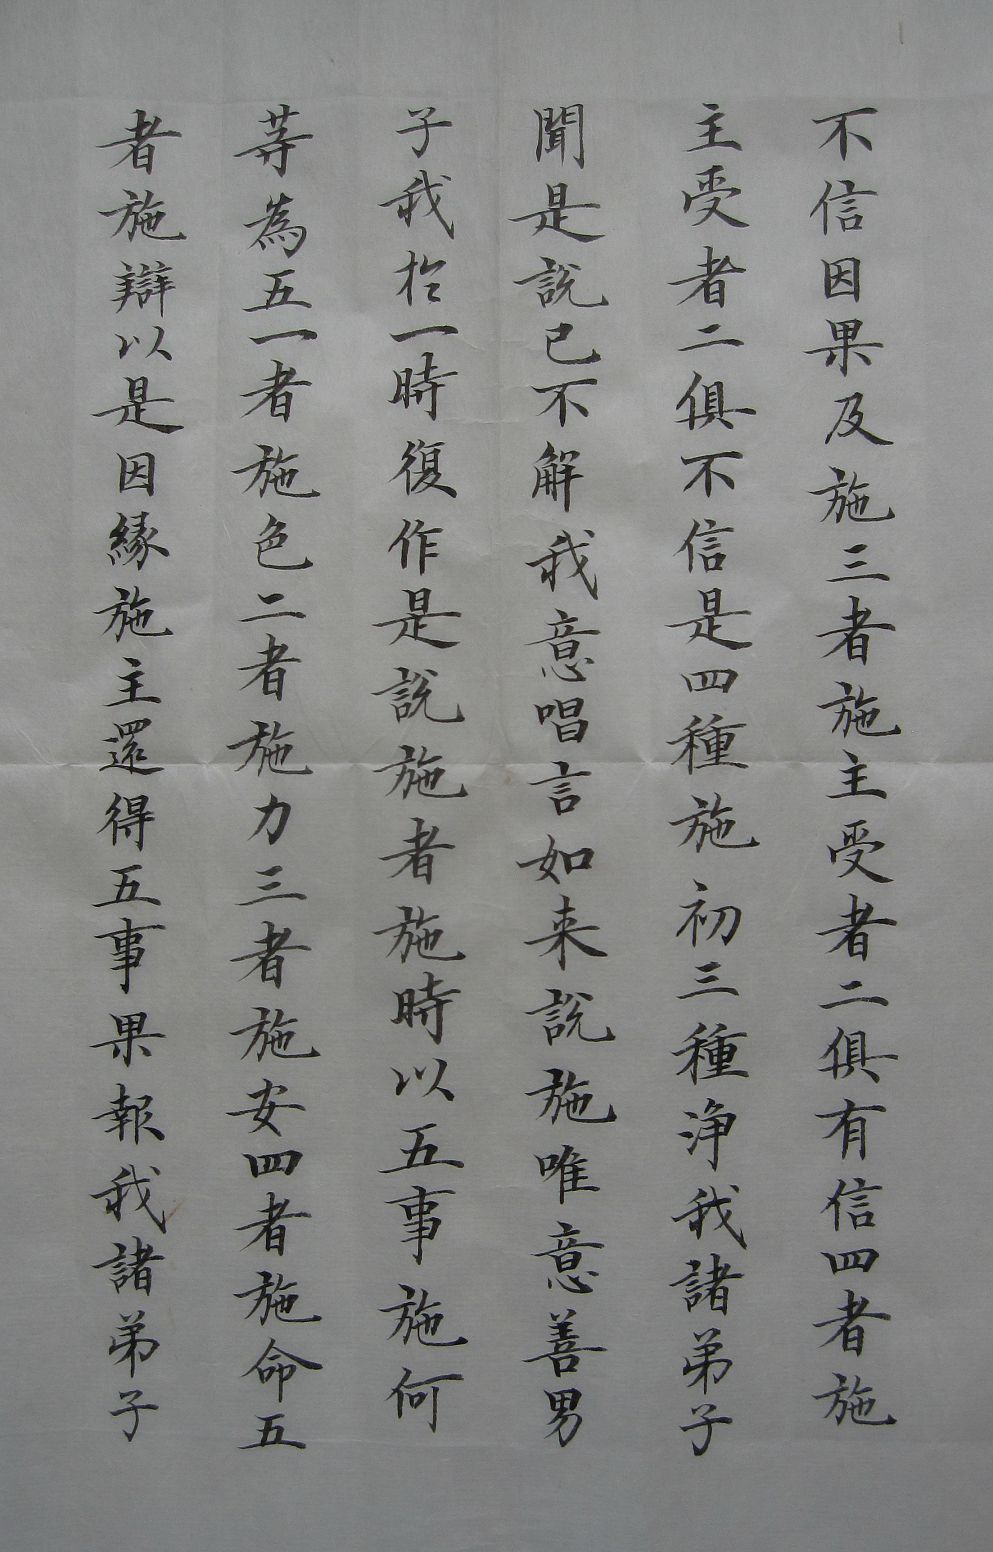 不信因果及施三者施主受者二俱有信四者施
主受者二俱不信是四種施初三種淨我諸弟子
聞是說已不解我意唱言如来說施唯意善男
子我於一時復作是說施者施時以五事施何
等為五一者施色二者施力三者施安四者施命五
者施辯以是因緣施主還得五事果報我諸弟子